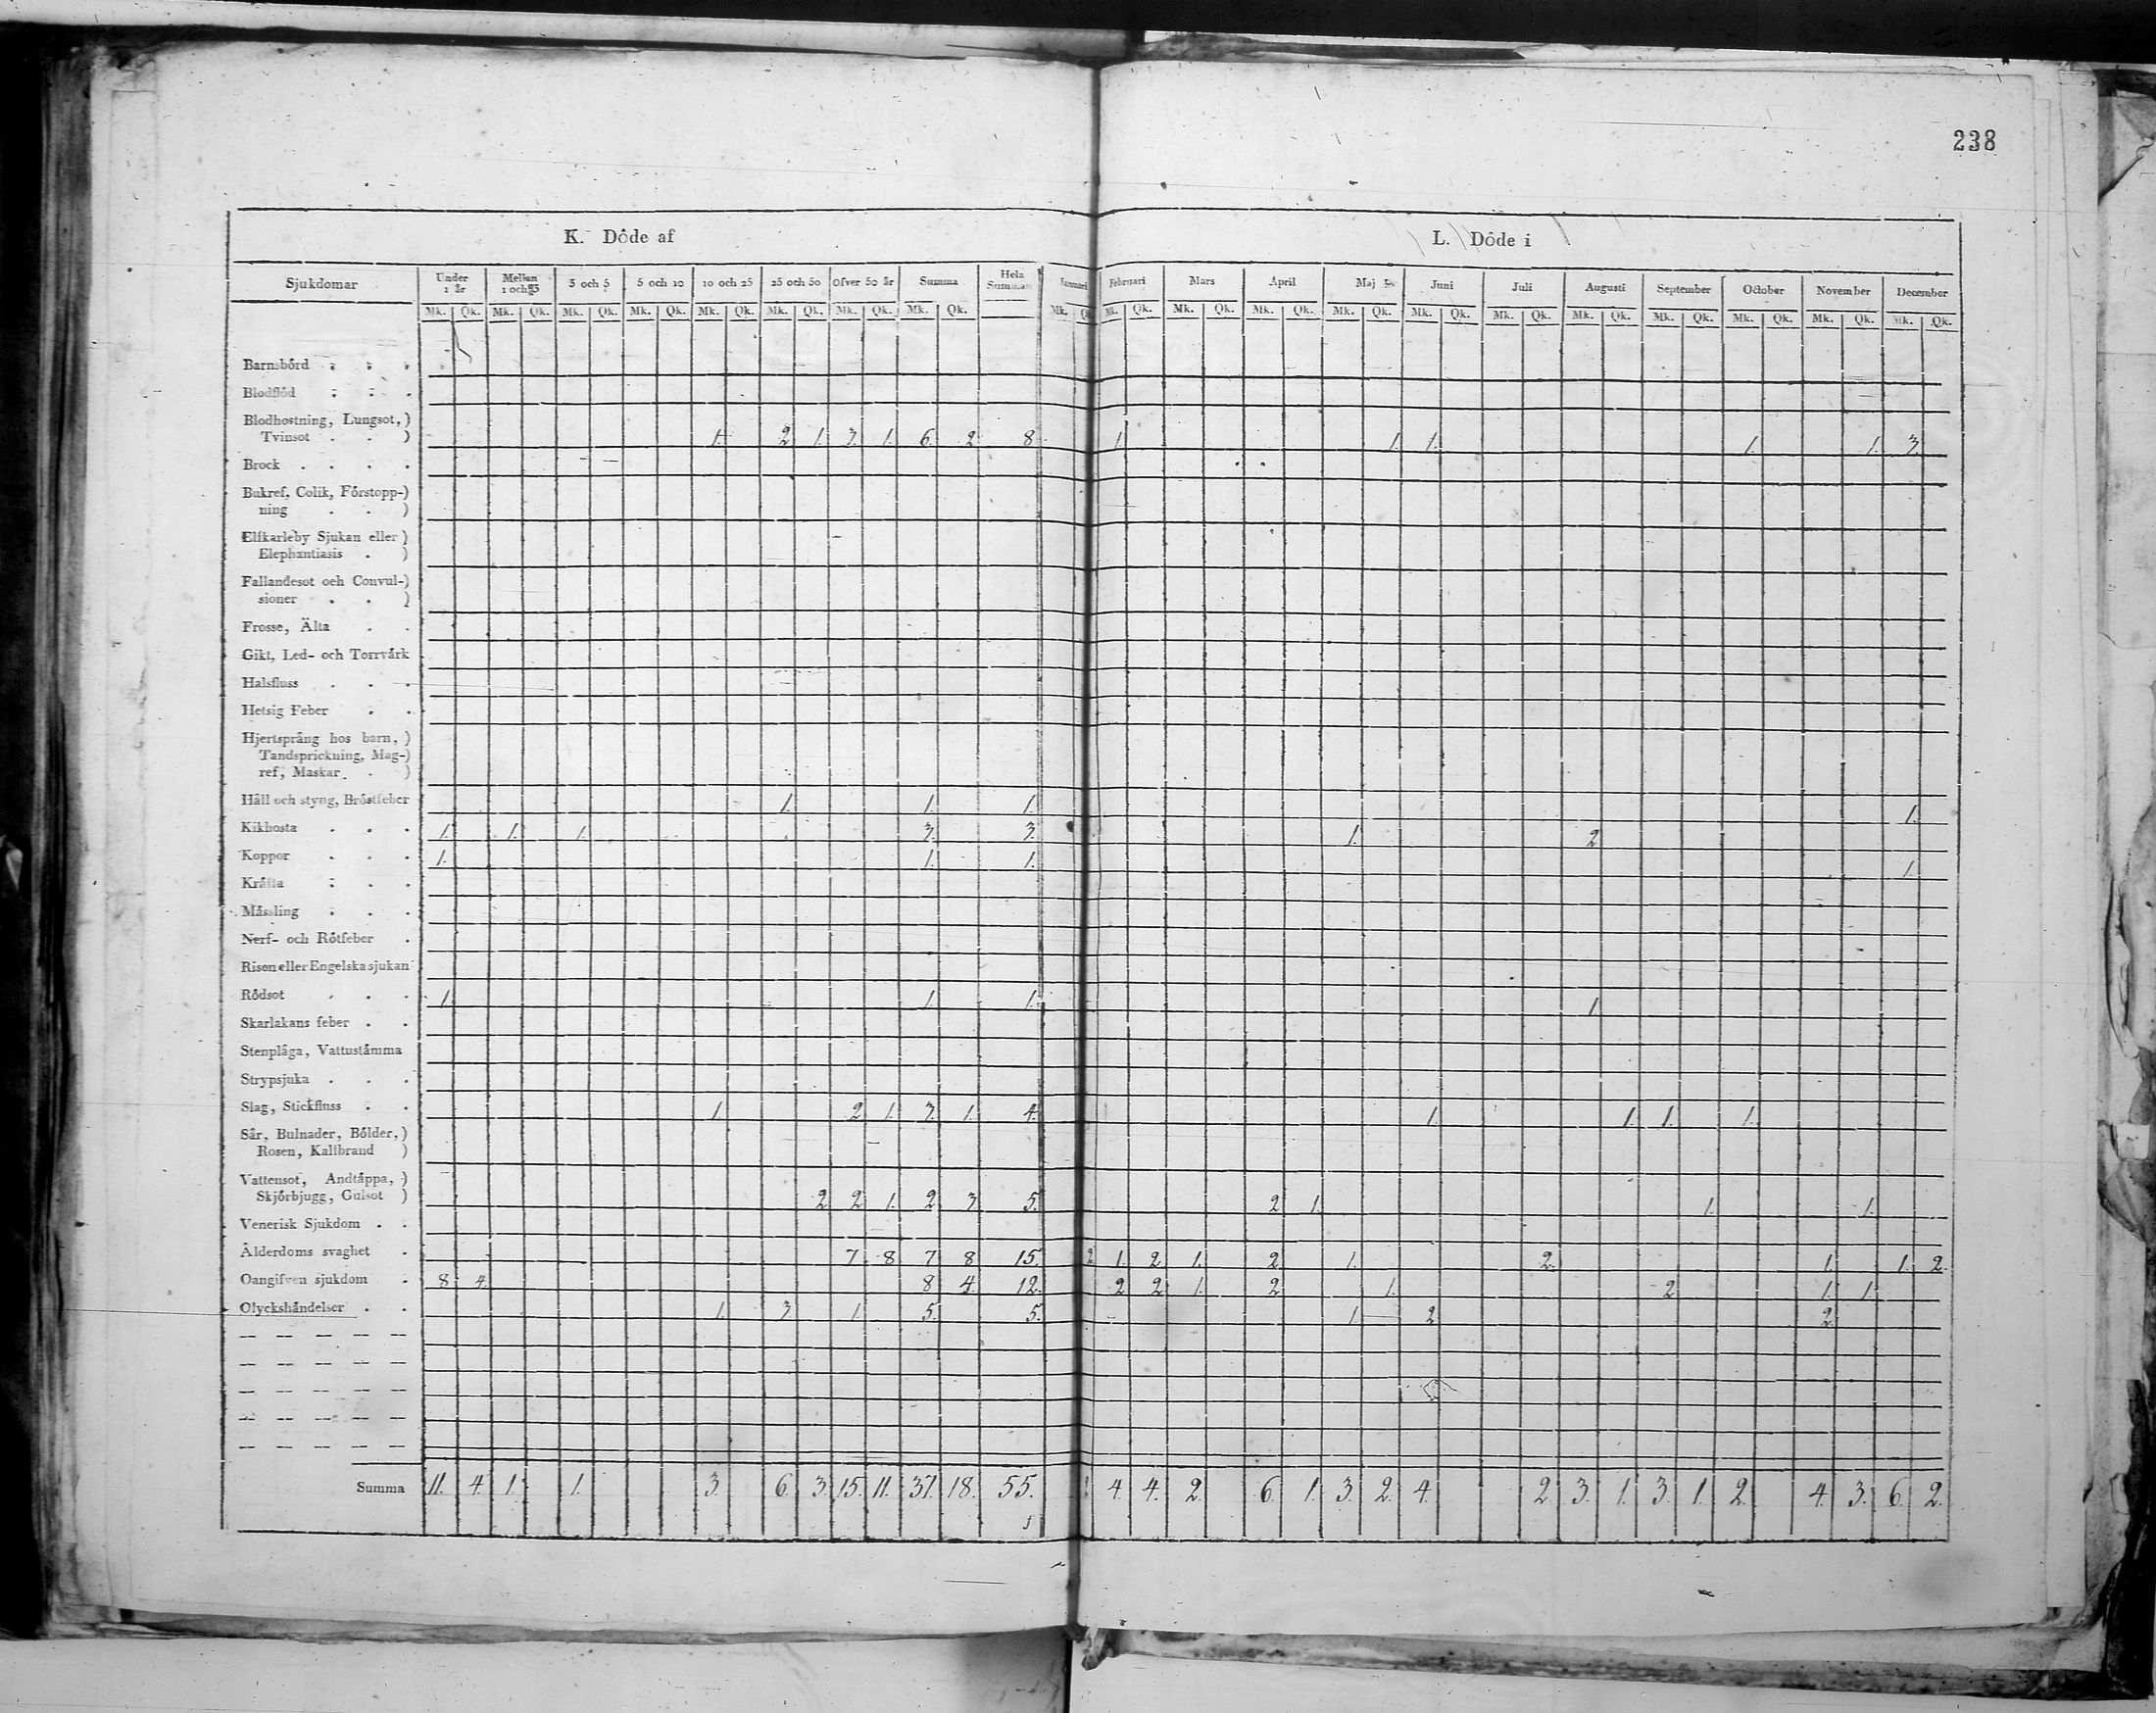 238
K. Döde af
L. Döde i
Sjukdomar Under 1 år Mellan 1 och 3 3 och 5 5 och 10 10 och 25 25 och 50 Ofver 50 år Summa Hela Summan Januari Februari Mars April Maj Juni Juli Augusti September October November December
Mk. Qk. Mk. Qk. Mk. Qk. Mk. Qk. Mk. Qk. Mk. Qk. Mk. Qk. Mk. Qk. Mk. Mk. Qk. Mk. Qk. Mk. Qk. Mk. Qk. Mk. Qk. Mk. Qk. Mk. Qk. Mk. Qk. Mk. Qk. Mk. Qk. Mk. Qk.
Barnsbörd . . .
Blodflöd . . .
Blodhostning, Lungsot,)
Tvinsot . . ) 1. 2 1. 3. 1. 6. 2 8 1. 1. 1. 1. 1. 3.
Brock . . . .
Bukref, Colik, Förstopp-)
ning . . )
Elfkarleby Sjukan eller )
Elephantiasis . )
Fallandesot och Convul-)
sioner . . )
Frosse, Älta . .
Gikt, Led- och Torrvärk
Halsfluss . . .
Hetsig Feber . .
Hjertsprång hos barn, )
Tandsprickning, Mag-)
ref, Maskar . )
Håll och styng, Bröstfeber 1. 1. 1. 1.
Kikhosta . . . 1. 1. 1. 3. 3. 1. 2
Koppor . . . 1. 1. 1. 1.
Kräfta . . .
Mässling . . .
Nerf- och Rötfeber .
Risen eller Engelska sjukan
Rödsot . . . 1. 1. 1. 1.
Skarlakans feber . .
Stenplåga, Vattustämma
Strypsjuka . . .
Slag, Stickfluss . . 1. 2 1. 3. 1. 4. 1. 1. 1. 1.
Sår, Bulnader, Bölder,)
Rosen, Kallbrand )
Vattensot, Andtäppa, )
Skjörbjugg, Gulsot ) 2 2 1. 2 3 5. 2 1. 1. 1.
Venerisk Sjukdom . .
Ålderdoms svaghet . 7 8 7 8 15. 2 1. 2 1. 2 1. 2. 1. 1. 2.
Oangifven sjukdom . 8 4. 8 4. 12. 2 2 1. 2 1. 2 1. 1.
Olyckshändelser . . 1. 3 1. 5. 5. 1. 2 2.
— — — — —
— — — — —
— — — — —
— — — — —
— — — — —
Summa 11. 4. 1. 1. 3. 6. 3. 15. 11. 37. 18. 55. 4. 4. 2. 6. 1. 3. 2. 4. 2 3. 1. 3. 1. 2. 4. 3. 6. 2.